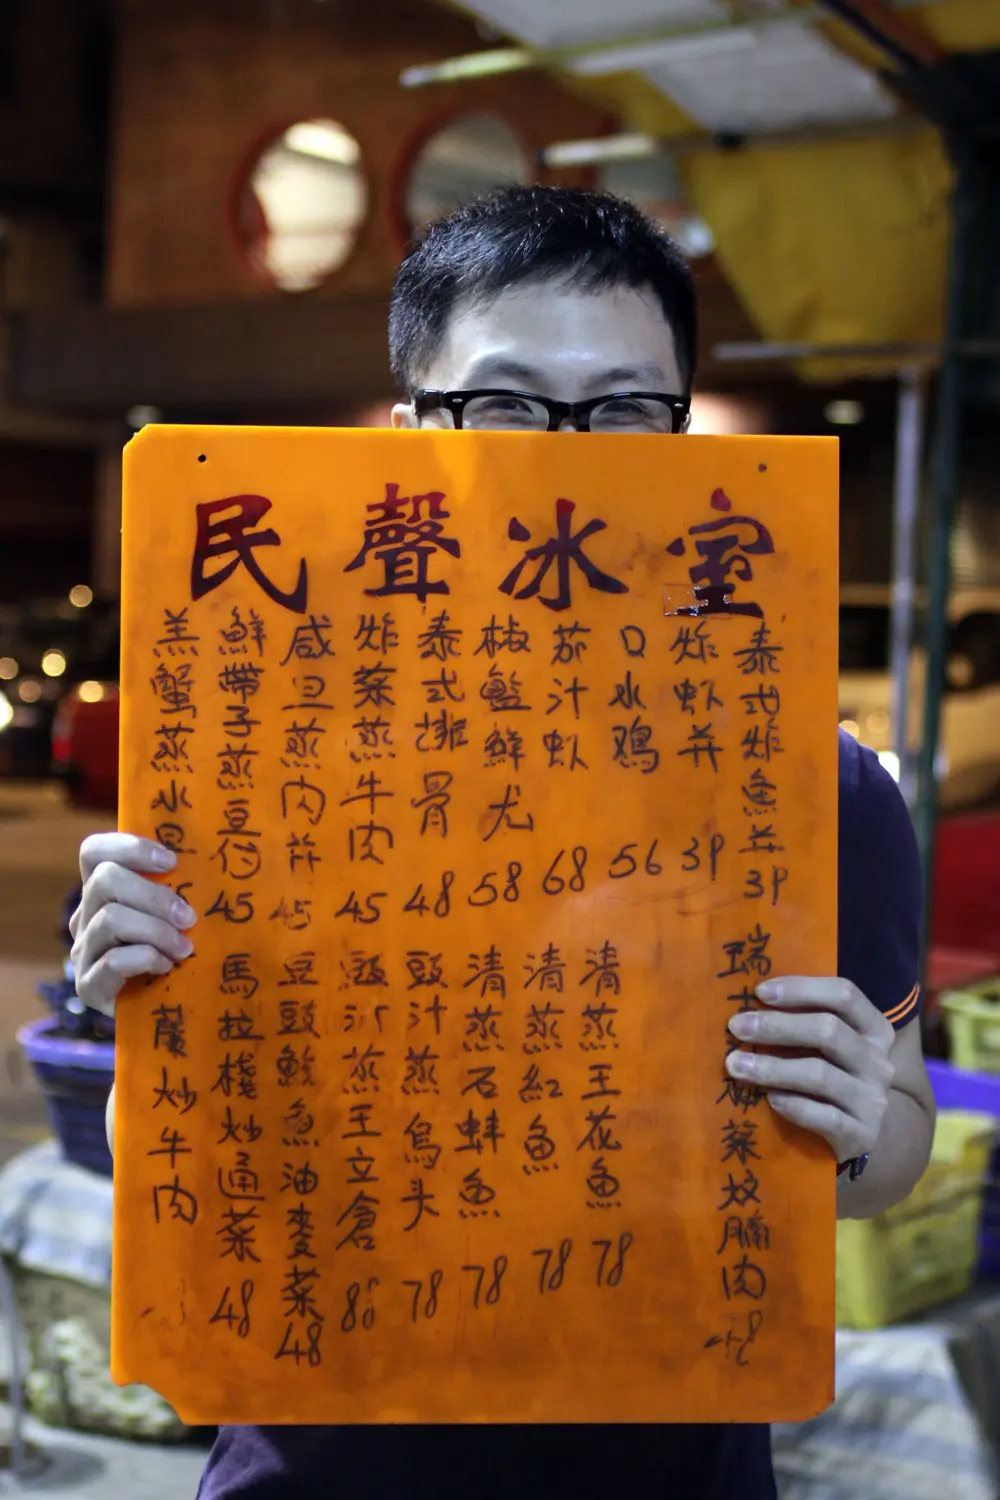 民聲冰室
泰式炸魚并39
炸虾并39
口水鸡56
茄汁虾68
椒鹽鮮尤58
泰式排骨48
炸菜蒸牛肉45
咸旦蒸肉并45
鮮帶子蒸豆付45
羔蟹蒸水旦
瑞 菜炆腩肉48
清蒸王花魚78
清蒸紅魚78
清蒸石蚌魚78
豉汁蒸烏头78
豉汁蒸王立倉88
豆豉鯪魚油麥菜48
馬拉棧炒通菜48
蘭炒牛肉